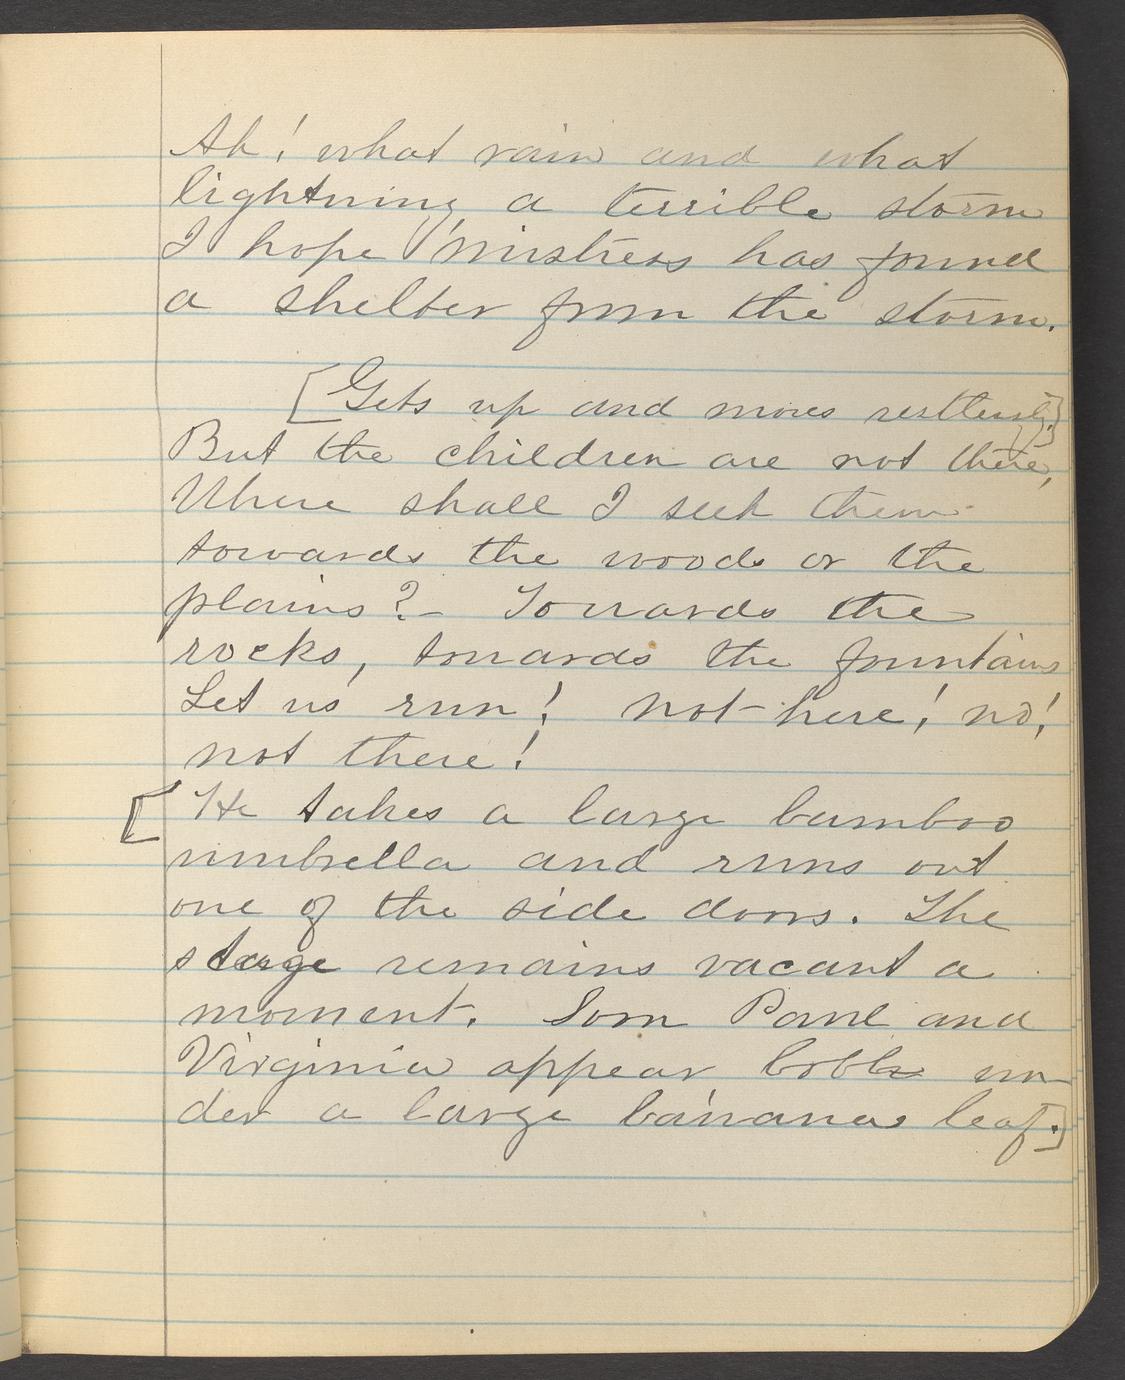 Ah! what rain and what
lightning, a terrible storm
I hope Mistress has found
a shelter from the storm.
[Gets up and moves restlessly.]
But the children are not there,
Where shall I seek them
towards the woods or the
plains? - Towards the
rocks, towards the fountains
Let us run! not here! no!
not there!
[He takes a large bamboo
umbrella and runs out
one of the side doors. The
stage remains vacant a
moment. Soon Paul and
Virginia appear both un-
der a large banana leaf.]